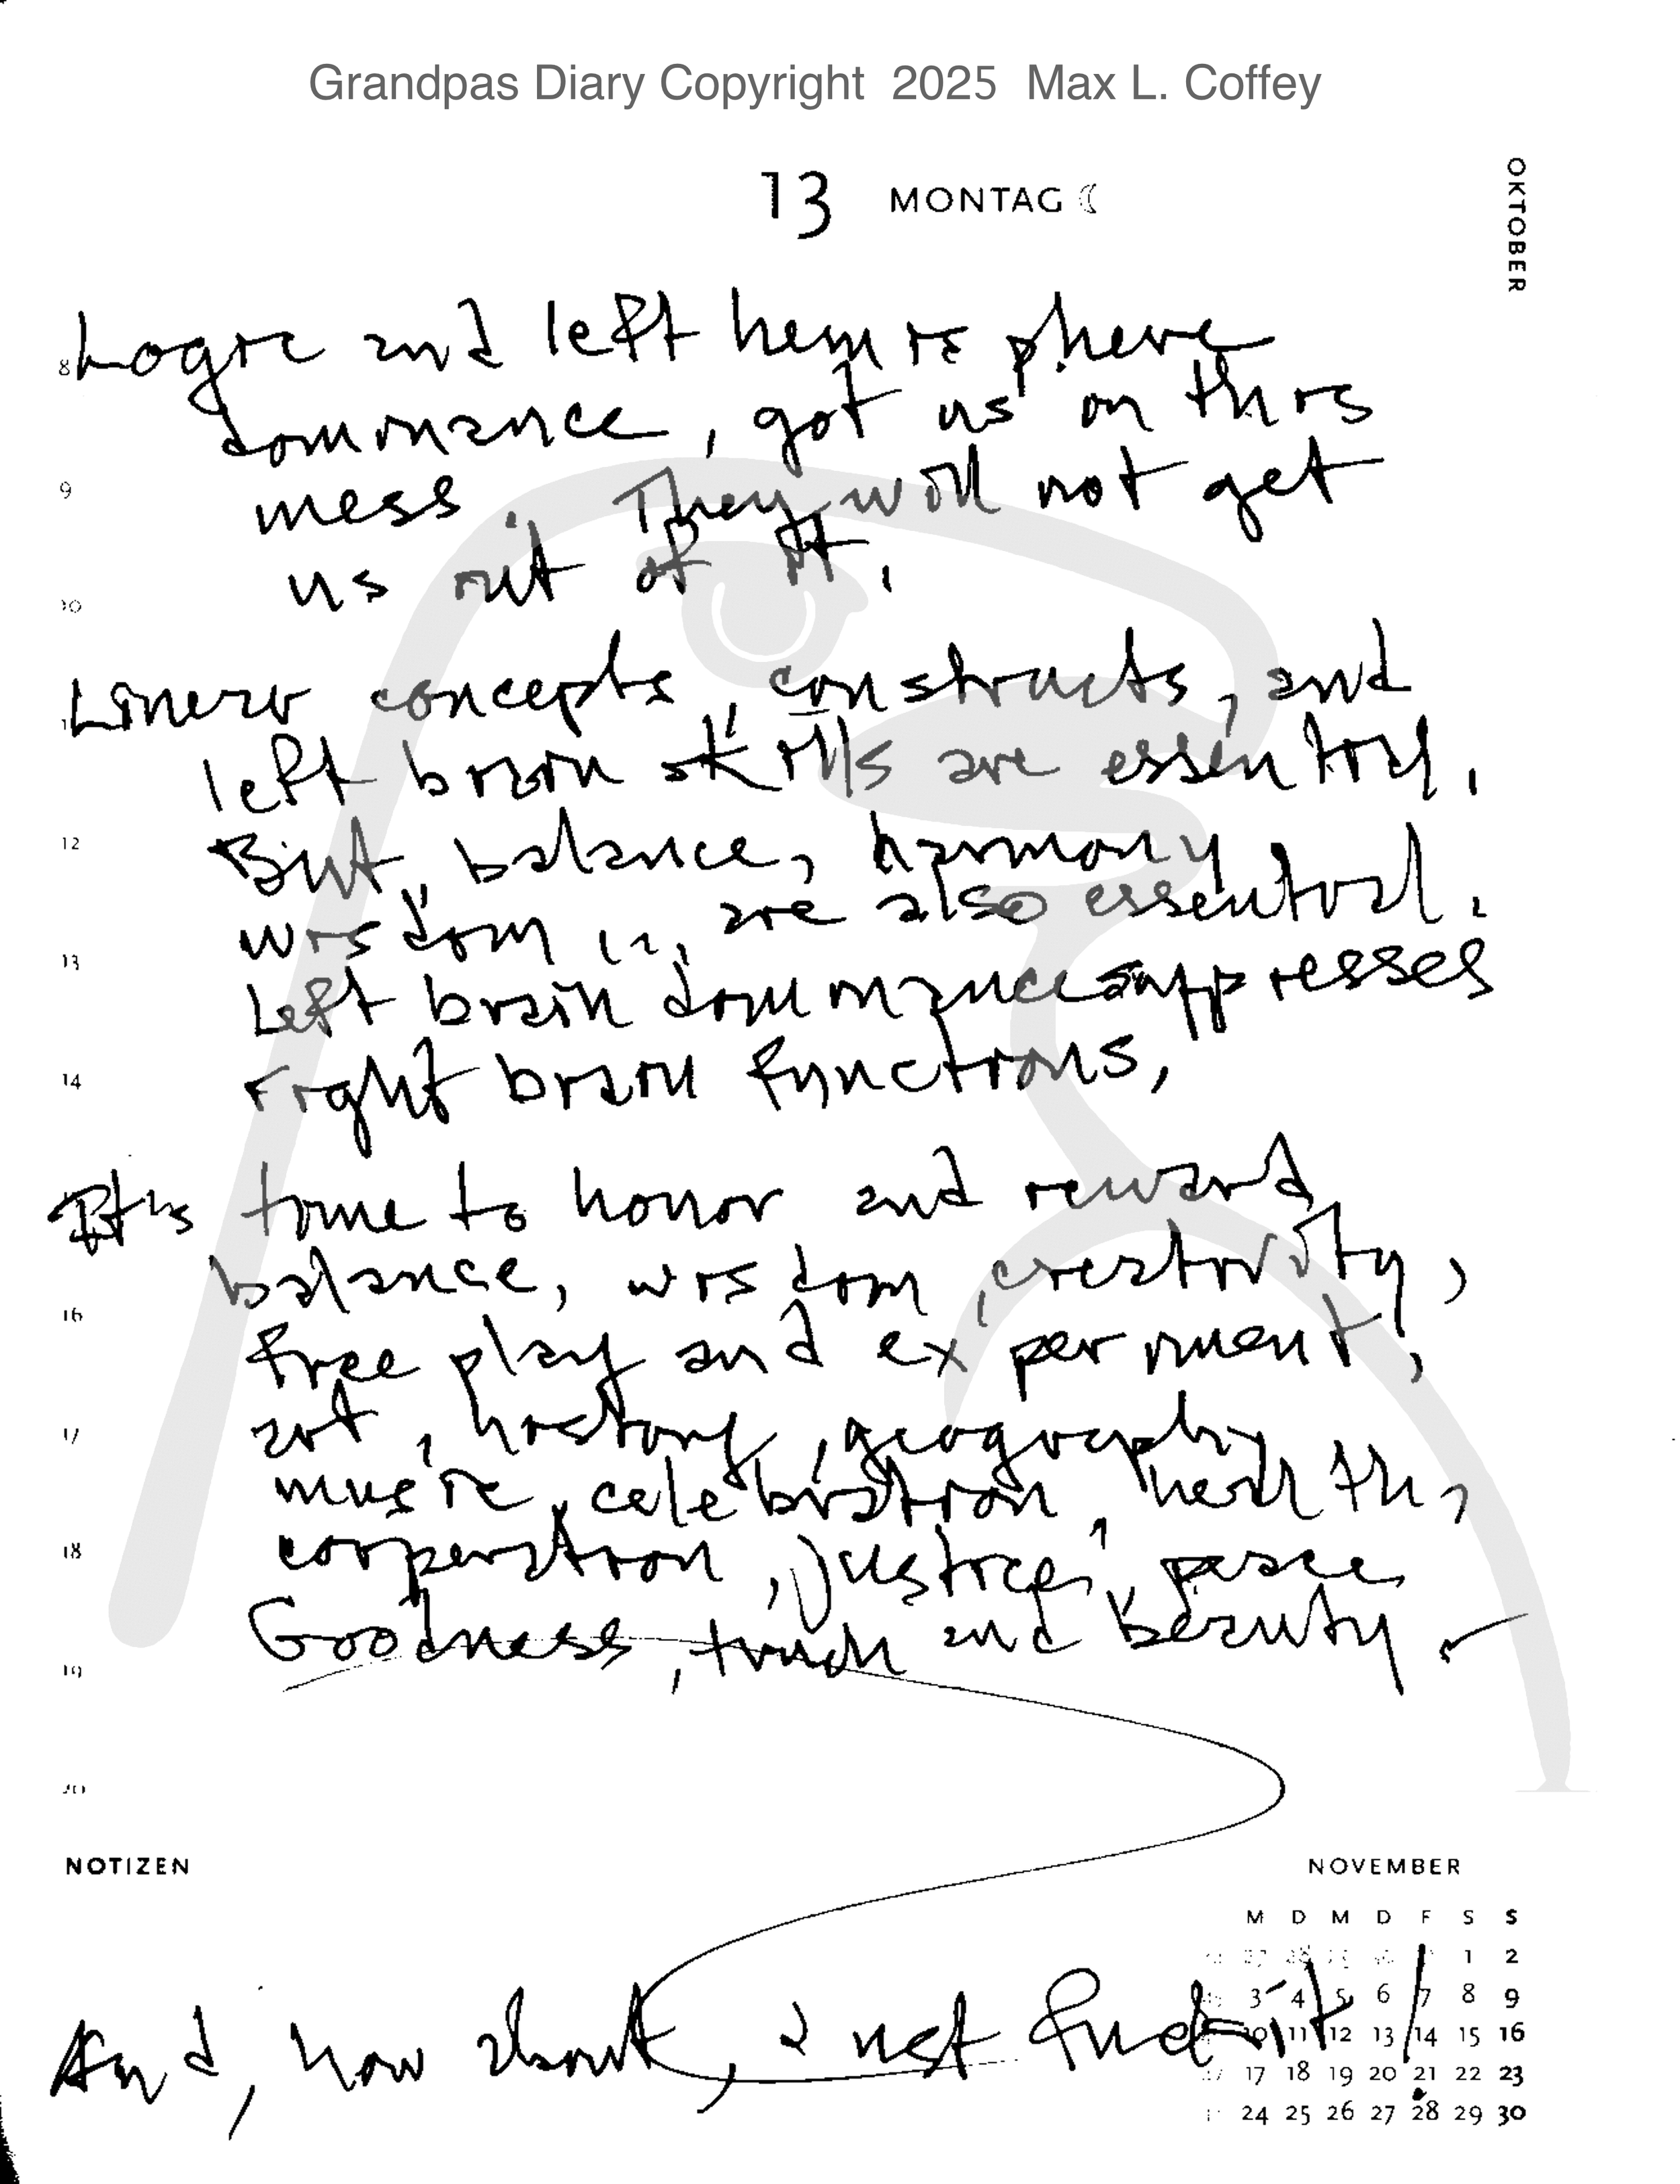 Grandpas Diary Copyright 2025 Max L. Coffey
13 MONTAG
OKTOBER
8 Logic and left hemisphere
dominance, got us in this
9 mess. They will not get
us out of it.
10
11 Linear concepts, constructs, and
left brain skills are essential.
12 But, balance, harmony,
wisdom, are also essential.
13 Left brain dominance suppresses
14 right brain functions,
It is time to honor and reward
balance, wisdom, creativity,
16 free play and experiment,
17 art, history, geography,
music, celebration, health,
18 cooperation, justice, peace,
Goodness, truth and beauty
19
20
NOTIZEN
And, how about, just
NOVEMBER
M D M D F S S
27 28 1 2
3 4 5 6 7 8 9
10 11 12 13 14 15 16
17 18 19 20 21 22 23
24 25 26 27 28 29 30